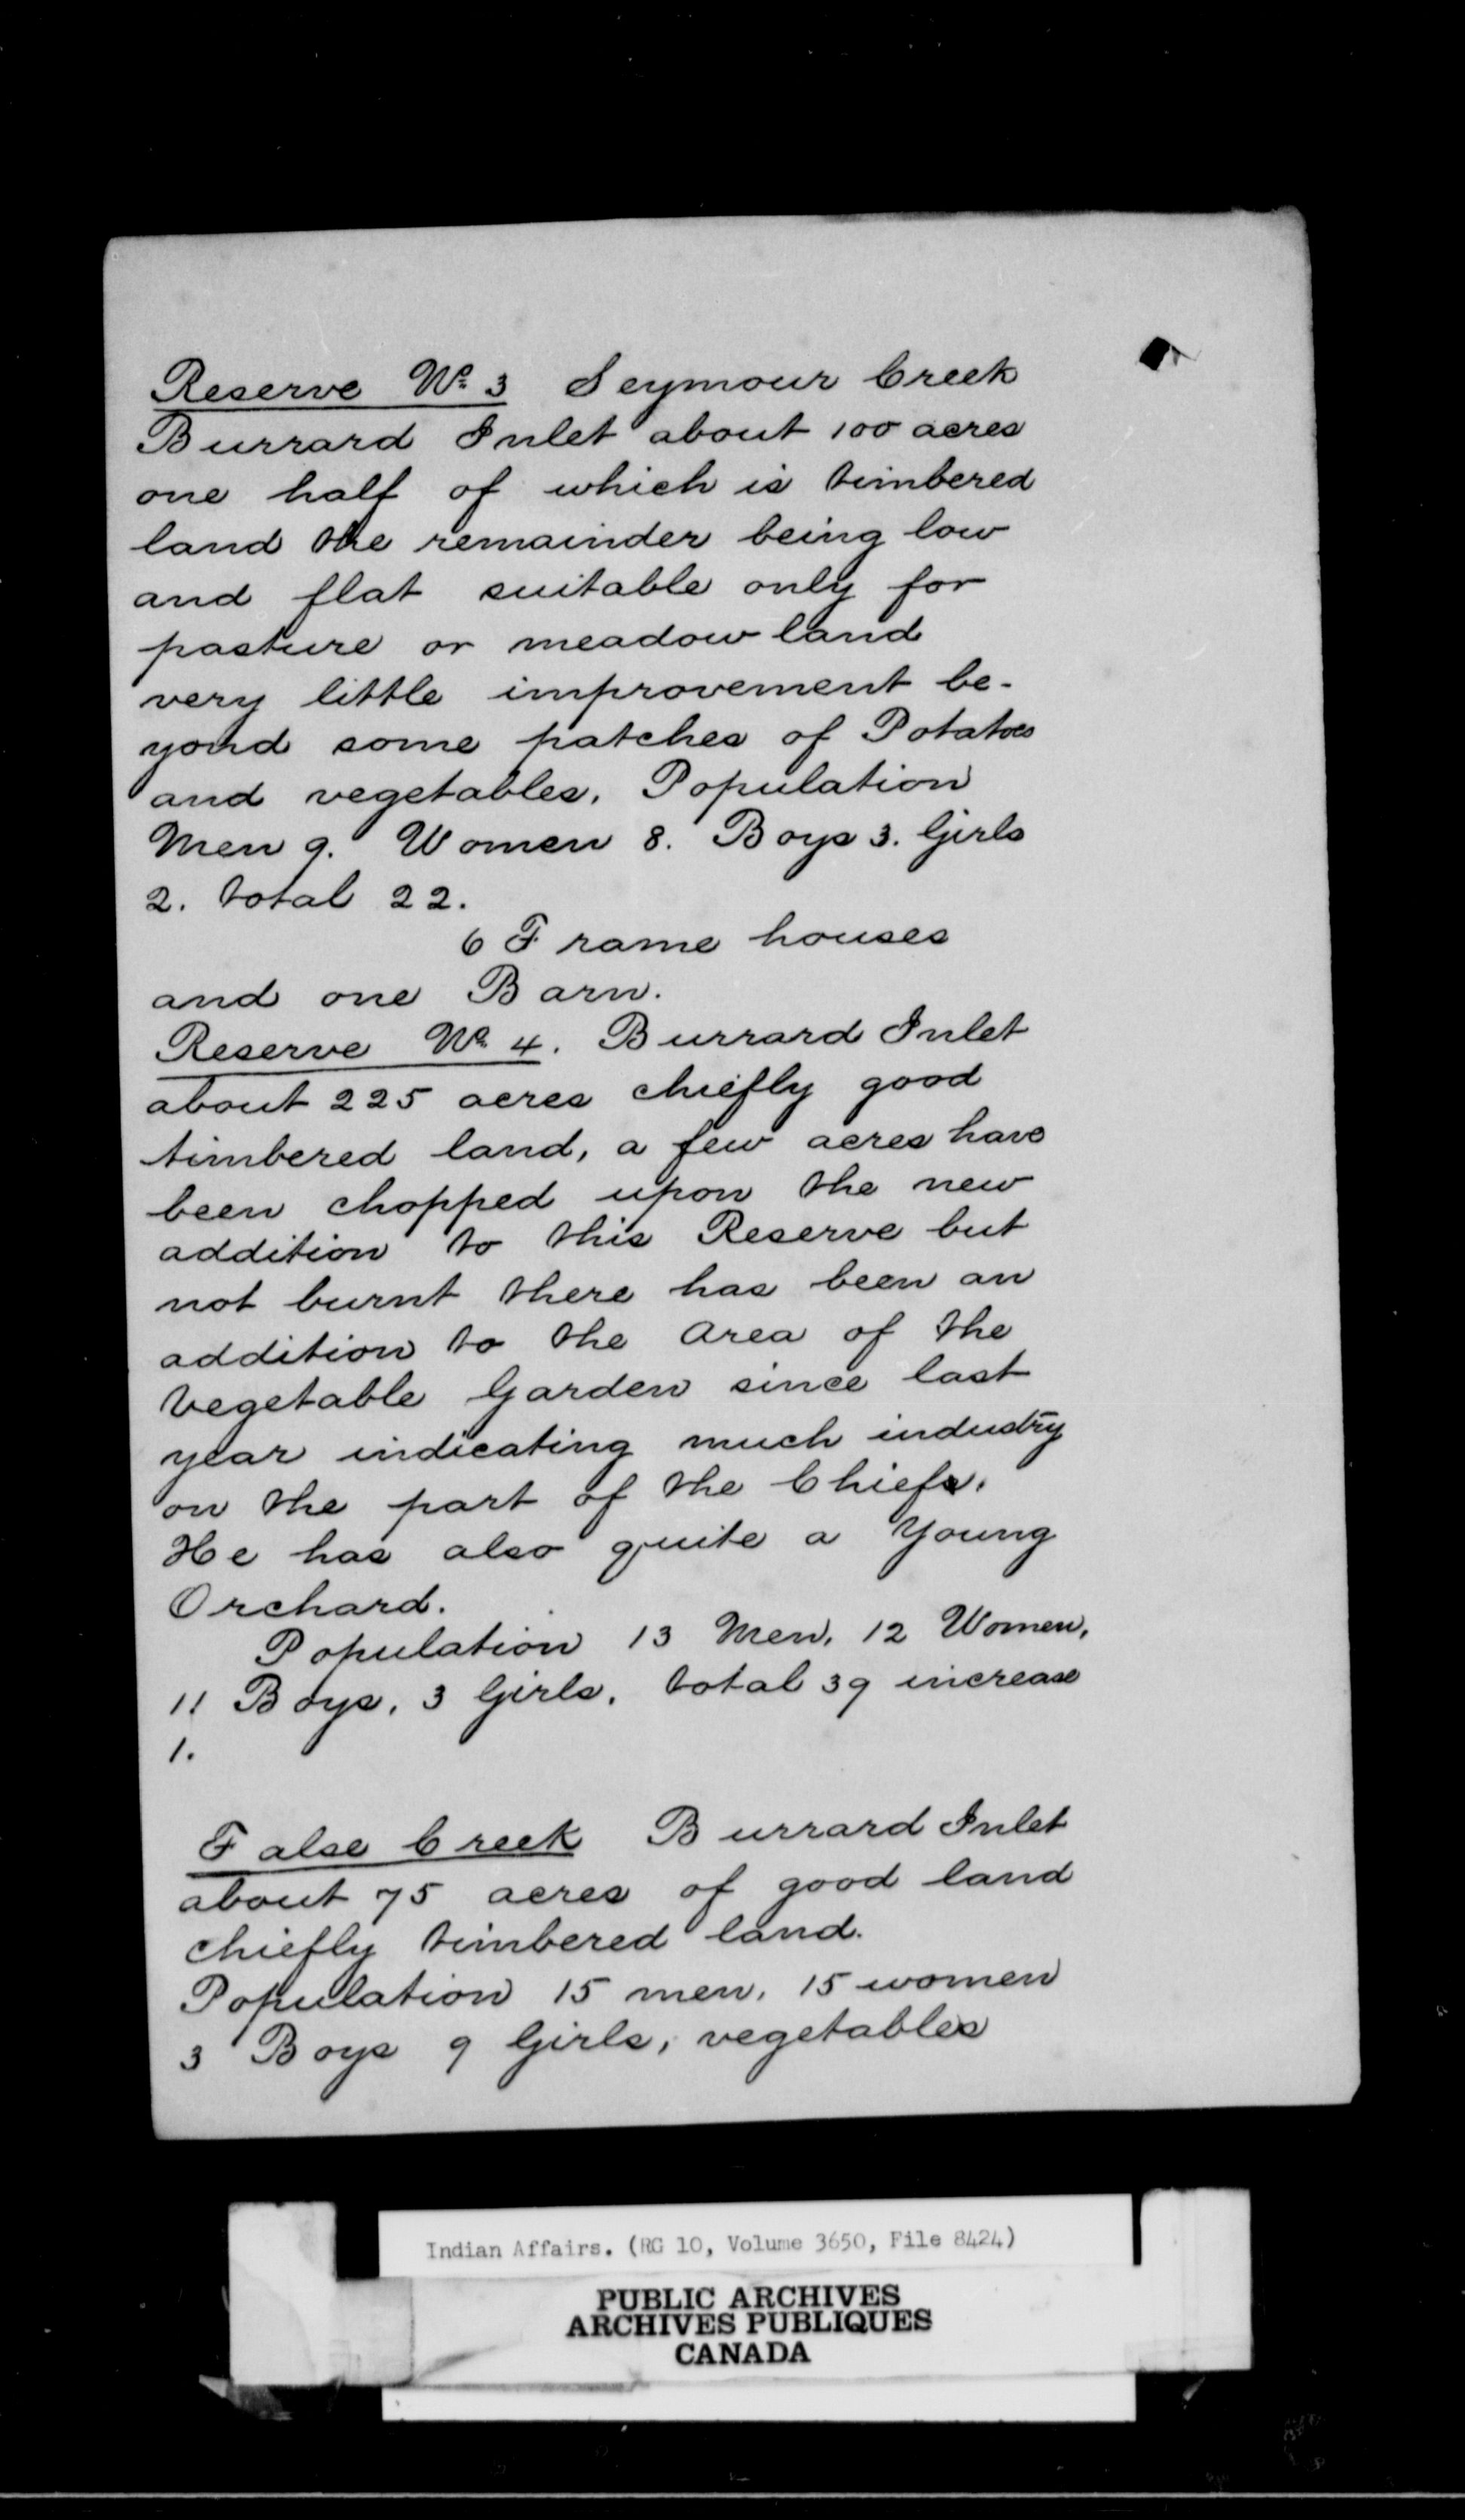 Reserve No. 3 Seymour Creek
Burrard Inlet about 100 acres
one half of which is timbered
land the remainder being low
and flat suitable only for
pasture or meadow land
very little improvement be-
yond some patches of Potatoes
and vegetables. Population
Men 9. Women 8. Boys 3. Girls
2. total 22.
6 Frame houses
and one Barn.
Reserve No. 4. Burrard Inlet
about 225 acres chiefly good
timbered land, a few acres have
been chopped upon the new
addition to this Reserve but
not burnt there has been an
addition to the Area of the
vegetable Garden since last
year indicating much industry
on the part of the Chiefs.
He has also quite a Young
Orchard.
Population 13 Men, 12 Women,
11 Boys, 3 Girls, total 39 increase
1.
False Creek Burrard Inlet
about 75 acres of good land
chiefly timbered land.
Population 15 men, 15 women
3 Boys 9 Girls, vegetables
Indian Affairs. (RG 10, Volume 3650, File 8424)
PUBLIC ARCHIVES
ARCHIVES PUBLIQUES
CANADA